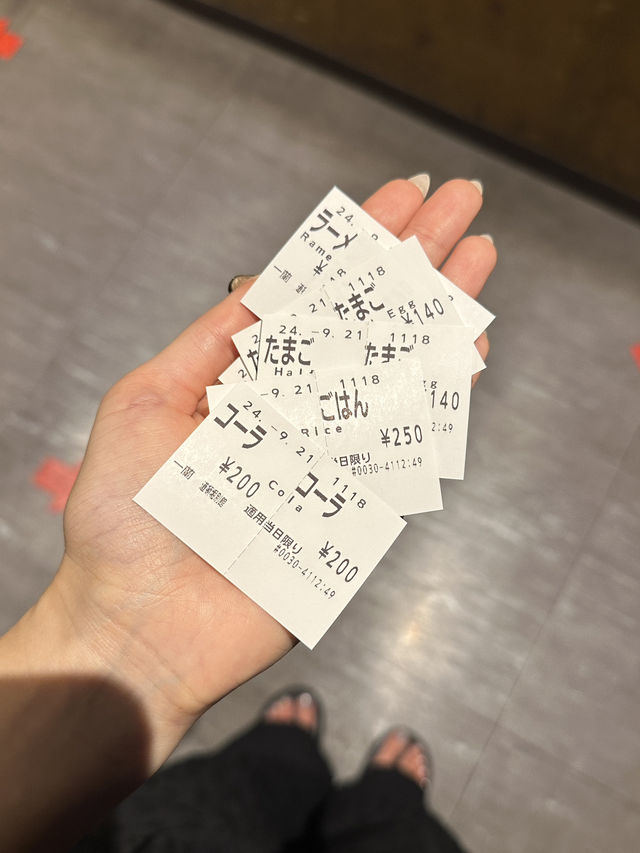 24.
ラーメ
Rame
¥
一蘭
1118
たまご
Egg
¥140
21
24.-9.21
1118
たまご
たまご
Hal
140
2:49
9.21
1118
ごはん
Rice
¥250
当日限り
#0030-4112:49
24.-9.21
1118
コーラ
コーラ
Cola
¥200
¥200
一蘭
適用当日限り
#0030-4112:49